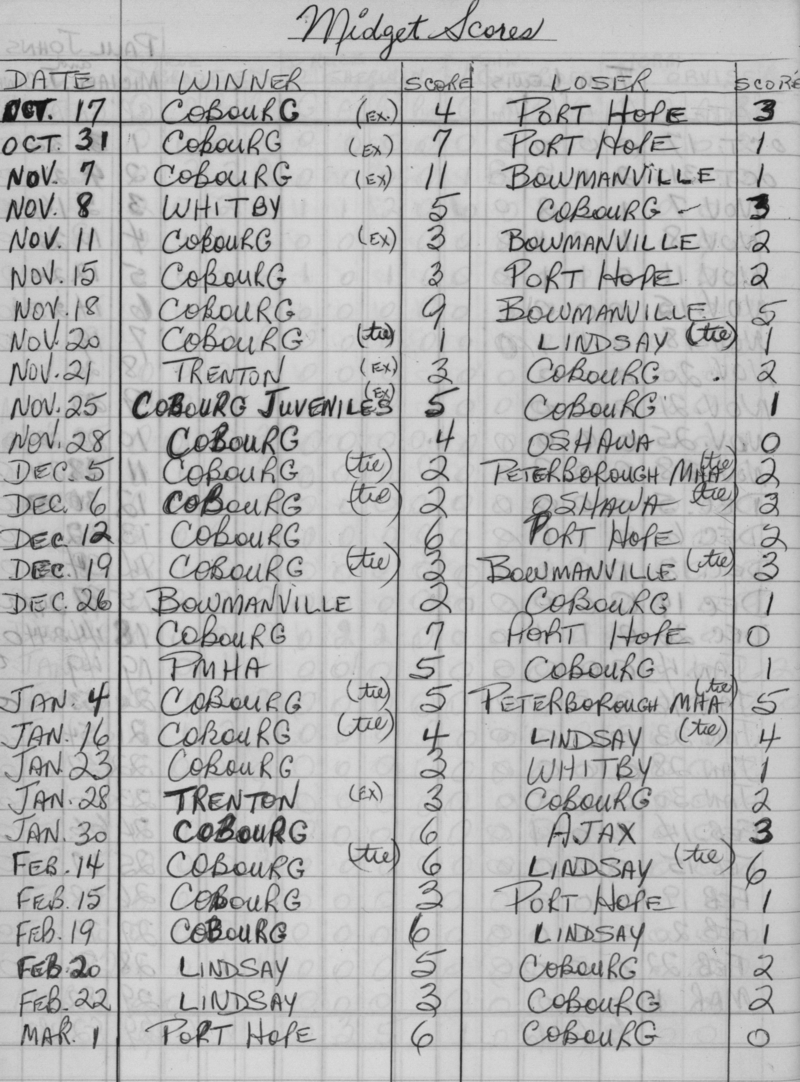 Midget Scores
DATE WINNER SCORE LOSER SCORE
OCT. 17 COBOURG (EX.) 4 PORT HOPE 3
OCT. 31 COBOURG (EX) 7 PORT HOPE 1
NOV. 7 COBOURG (EX) 11 BOWMANVILLE 1
NOV. 8 WHITBY 5 COBOURG - 3
NOV. 11 COBOURG (EX) 3 BOWMANVILLE 2
NOV. 15 COBOURG 3 PORT HOPE 2
NOV. 18 COBOURG 9 BOWMANVILLE 5
NOV. 20 COBOURG (tie) 1 LINDSAY (tie) 1
NOV. 21 TRENTON (EX) 3 COBOURG . 2
NOV. 25 COBOURG JUVENILES (EX) 5 COBOURG 1
NOV. 28 COBOURG 4 OSHAWA 0
DEC. 5 COBOURG (tie) 2 PETERBOROUGH MHA (tie) 2
DEC. 6 COBOURG (tie) 2 OSHAWA (tie) 2
DEC. 12 COBOURG 6 PORT HOPE 2
DEC. 19 COBOURG (tie) 3 BOWMANVILLE (tie) 3
DEC. 26 BOWMANVILLE 2 COBOURG 1
COBOURG 7 PORT HOPE 0
PMHA 5 COBOURG 1
JAN. 4 COBOURG (tie) 5 PETERBOROUGH MHA (tie) 5
JAN. 16 COBOURG (tie) 4 LINDSAY (tie) 4
JAN. 23 COBOURG 3 WHITBY 1
JAN. 28 TRENTON (EX) 3 COBOURG 2
JAN. 30 COBOURG 6 AJAX 3
FEB. 14 COBOURG (tie) 6 LINDSAY (tie) 6
FEB. 15 COBOURG 3 PORT HOPE 1
FEB. 19 COBOURG 6 LINDSAY 1
FEB. 20 LINDSAY 5 COBOURG 2
FEB. 22 LINDSAY 3 COBOURG 2
MAR. 1 PORT HOPE 6 COBOURG 0